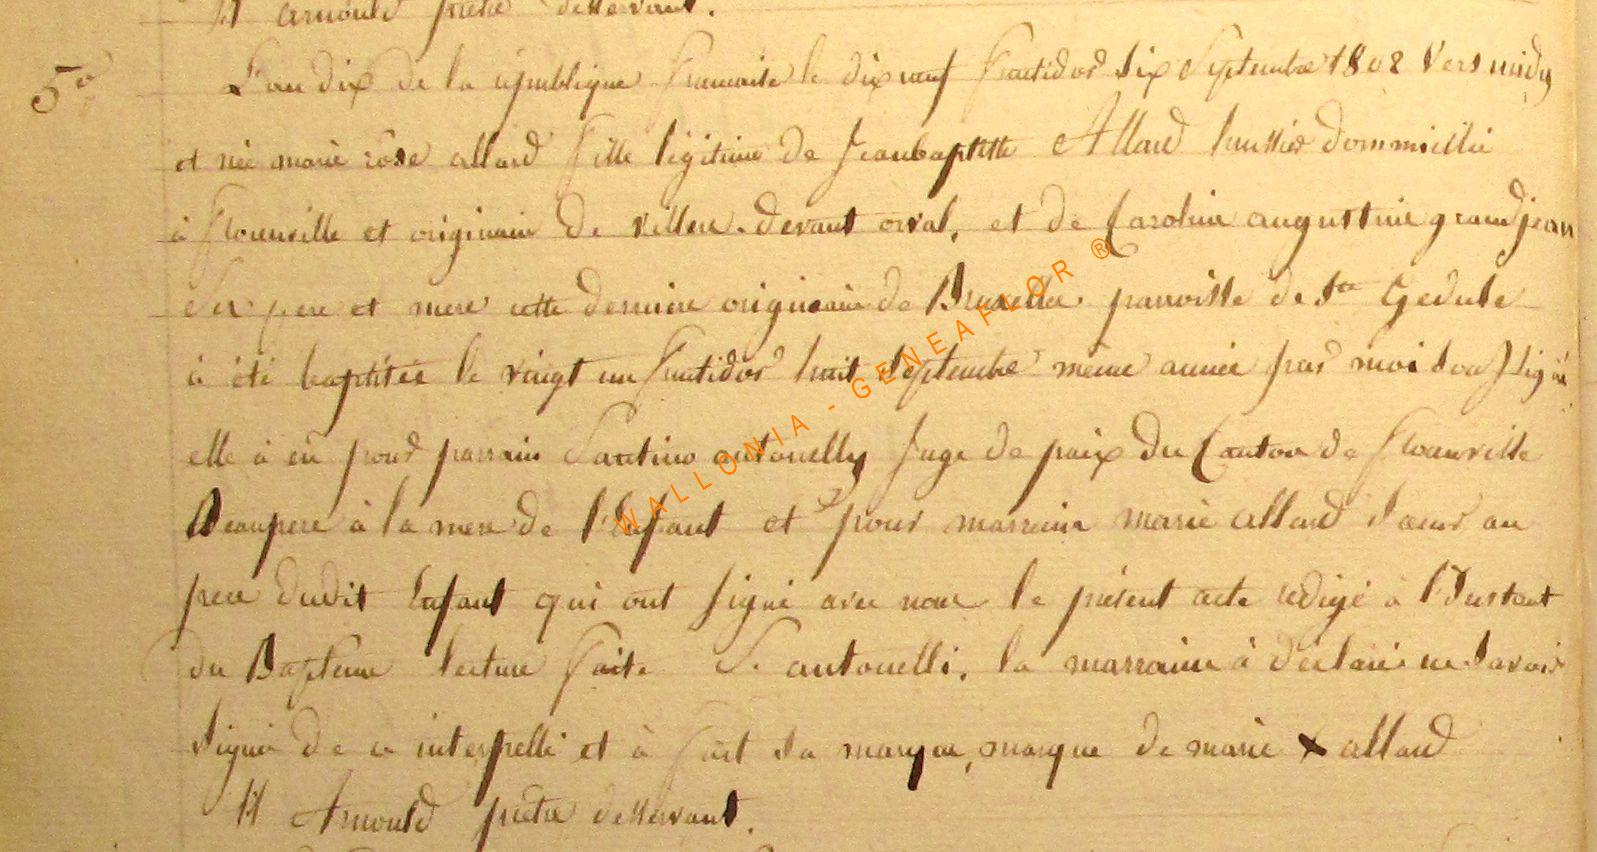 H arnould pretre desservant.
5e
L'an dix de la republique francaise le dix neuf fructidor six Septembre 1802 vers midy
est née marie rôse allard fille légitime de Jeanbaptiste Allard huissier dommicilié
à florenville et originaire de villers-devant orval, et de Caroline augustine grandjean
ses pere et mere cette derniere originaire de Bruxelles parroisse de Ste Gedule
à été baptisée le vingt un fructidor huit septembre même année par moi soussigné
elle à eû pour parrain Santino antonelly Juge de paix du Canton de florenville
Beaupere à la mere de l'Enfant et pour marraine marie allard soeur au
pere dudit Enfant qui ont signé avec nous le présent acte redigé à l'Instant
du Bapteme lecture faite S. antonelli. la marraine à déclaré ne savoir
signer de ce interpellé et à fait sa marque, marque de marie x allard
H Arnould pretre desservant.
WALLONIA - GENEAFLOR ®